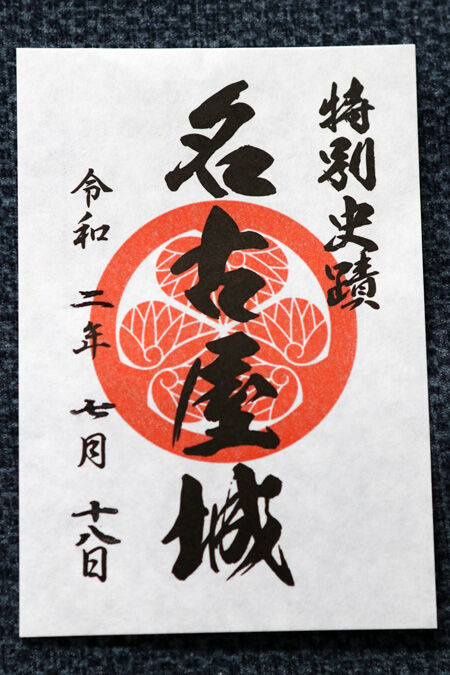 特別史蹟
名古屋城
令和 二年 七月 十八日